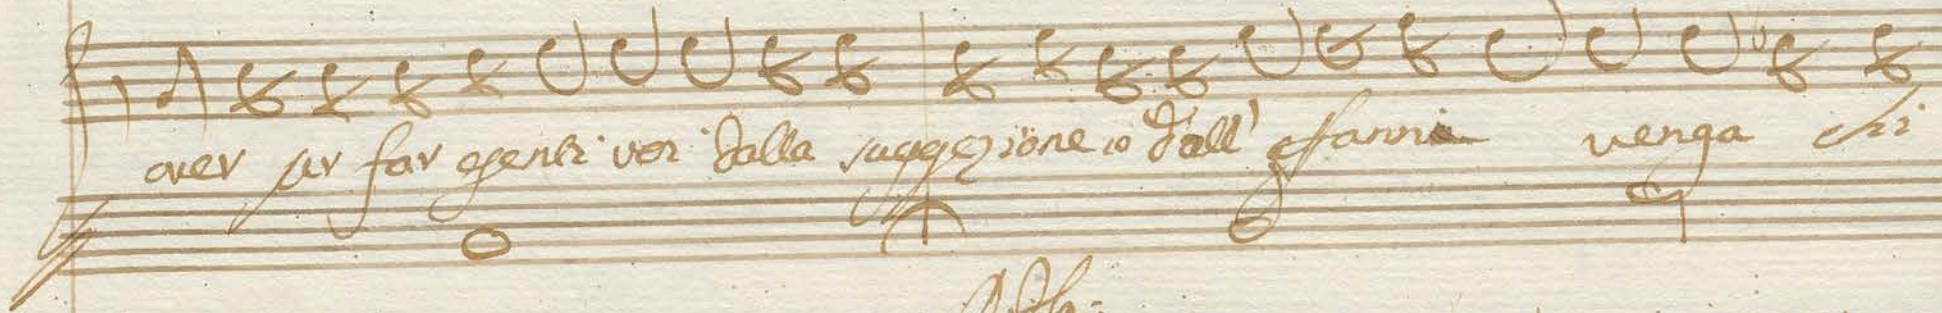 aver per far esenti voi dalla suggezione io dall' affanni venga chi